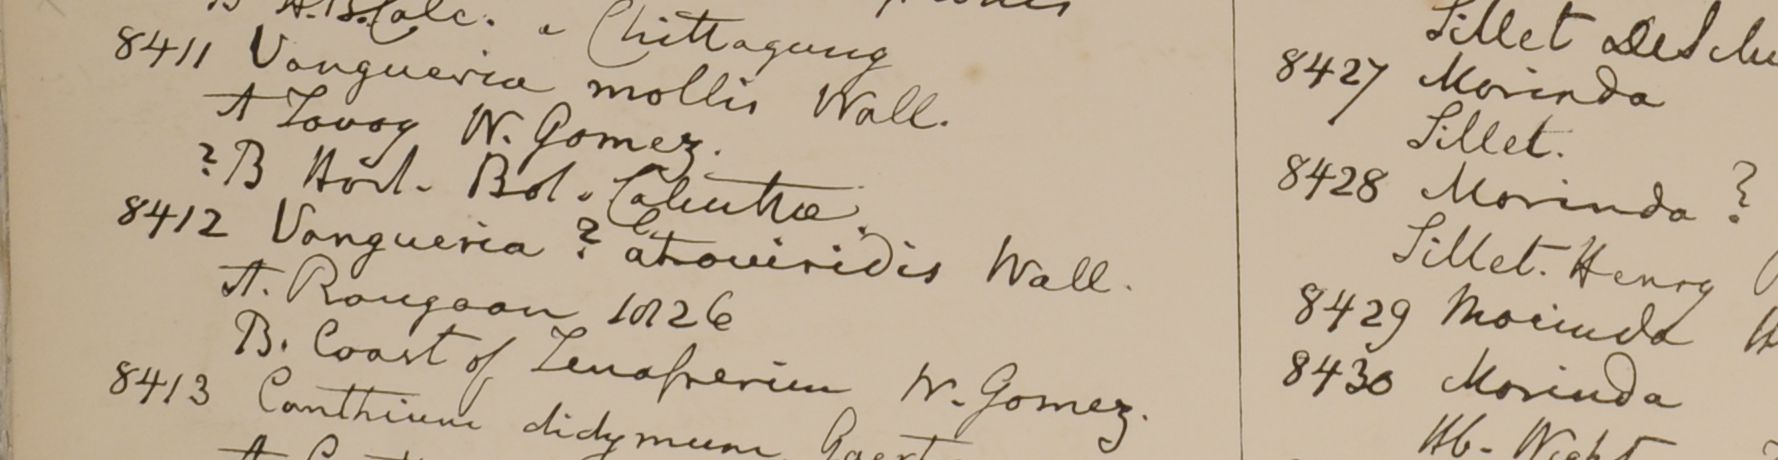 B H.B.Calc. " Chittagung
8411 Vangueria mollis Wall.
A Tavoy W. Gomez.
? B Hort. Bot. Calcuttae.
8412 Vangueria ? atroviridis Wall.
A. Rangoon 1826
B. Coast of Tenasserim W. Gomez.
8413 Canthium didymum Gaert
A
Sillet
8427 Morinda
Sillet.
8428 Morinda ?
Sillet. Henry
8429 Morinda
8430 Morinda
Hb. Wight